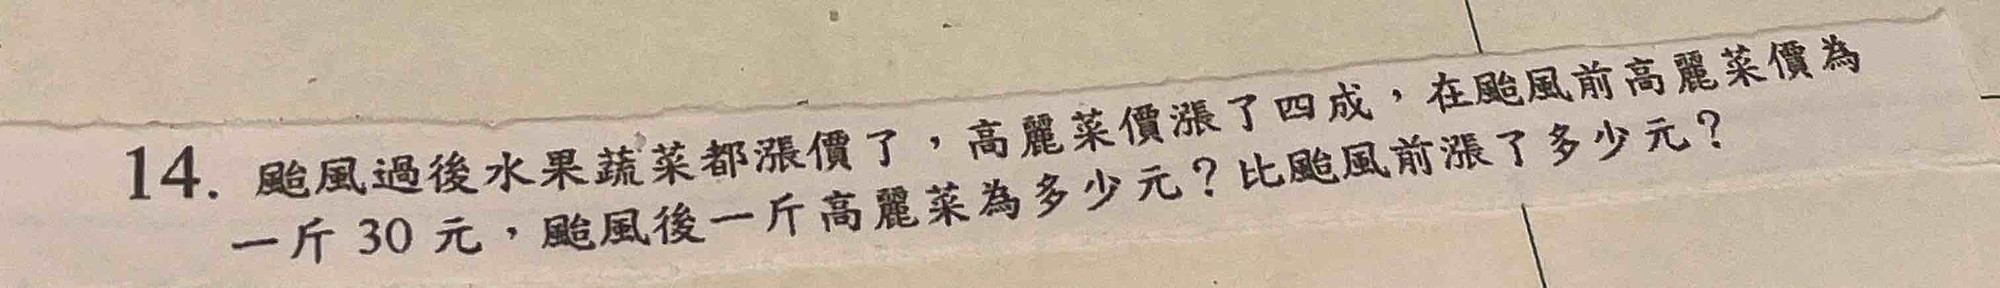 14. 颱風過後水果蔬菜都漲價了，高麗菜價漲了四成，在颱風前高麗菜價為
一斤 30 元，颱風後一斤高麗菜為多少元？比颱風前漲了多少元？